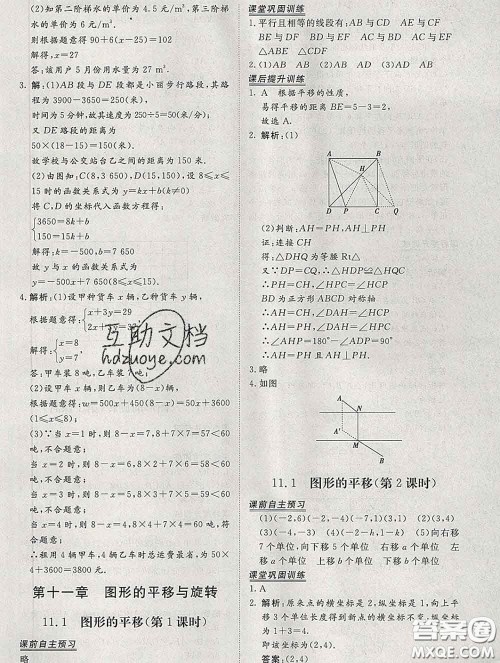 (2)知第二阶梯水的单价为 4.5 元/m³,第三阶梯水的单价为 6 元/m³.
则根据题意得 90+6(x-25)=102
解得,x=27
答:该用户 5 月份用水量为 27 m³.
3. 解:(1)AB 段与 DE 段都是小丽步行路段,其路
程为 3900-3650=250(米).
因为时间为 5 分钟,故其速度为 250÷5=50(米/分).
又 DE 路段的距离为
50×(18-15)=150(米).
故学校与公交站台乙间距离为 150 米.
(2)由图知:C(8,3 650),D(15,150),设 8≤x≤
15 时的函数关系式为 y=kx+b(k≠0)
将 C,D 的坐标代入函数方程得:
3650=8k+b
150=15k+b
解得:k=-500,b=7 650
故 y 与 x 的函数关系式为
y=-500x+7650(8≤x≤15).
4. 解析:(1)设甲种货车 x 辆,乙种货车 y 辆,
根据题意得:x+3y=29
解得:x=8
y=7
答:甲车装 8 吨,乙车装 7 吨.
(2)设甲车 x 辆,则乙车为(8-x)辆,
根据题意得:w=500x+450(8-x)=50x+3600
(1≤x≤8);
(3)∵当 x=1 时,则 8-x=7,8+7×7=57<60
吨,不合题意;
当 x=2 时,则 8-x=6,8×2+7×6=58<60
吨,不合题意;
当 x=3 时,则 8-x=5,8×3+7×5=59<60
吨,不合题意;
当 x=4 时,则 8-x=4,8×4+7×4=60 吨,符合
题意;
∴租用 4 辆甲车,乙车 4 辆时总运费最省,为 50×
4+3600=3800 元.
第十一章 图形的平移与旋转
11.1 图形的平移(第 1 课时)
课前自主预习
略
课堂巩固训练
1. 平行且相等的线段有:AB 与 CD AF 与 CE
BE 与 DF BF 与 CD AF 与 BE
DF 与 AC
2. (1)△ABC △BEF (2)A 点 B
课后提升训练
1. A 根据平移的性质,
易得平移的距离=5-3=2,
故选 A.
2. 解析:(1)
A B
H
D P C Q
(2)判断:AH=PH,AH⊥PH
证:连接 CH
得:△DHQ 为等腰 Rt△
又∵DP=CQ,∴△HDP≌△HQC
∴PH=CH,∠HPC=∠HCP
BD 为正方形 ABCD 对称轴
∴AH=CH,∠DAH=∠HCP
∴∠AHP=180°-∠ADP=90°
∴AH=PH 且 AH⊥PH.
3. 略
4. 如图
A
N
A'
M
B
11.1 图形的平移(第 2 课时)
课前自主预习
(1)(-2,6)(-2,-4)(-7,1)(3,1) (2)(3,4)
(3)(4,2) (4)(-2-h,1-k) (5)向右移
7 个单位、向下移 5 个单位 右移 a 个单位 上
移 b 个单位
课堂巩固训练
1. A
2. 解析:原来点的横坐标是 2,纵坐标是 1,向上平
移 3 个单位长度得到新点的横坐标不变,纵坐标
为 1+3=4.
即该坐标为(2,4).
答案:(2,4)
互助文档
hdzuoye.com
答案圈
MXQE.COM